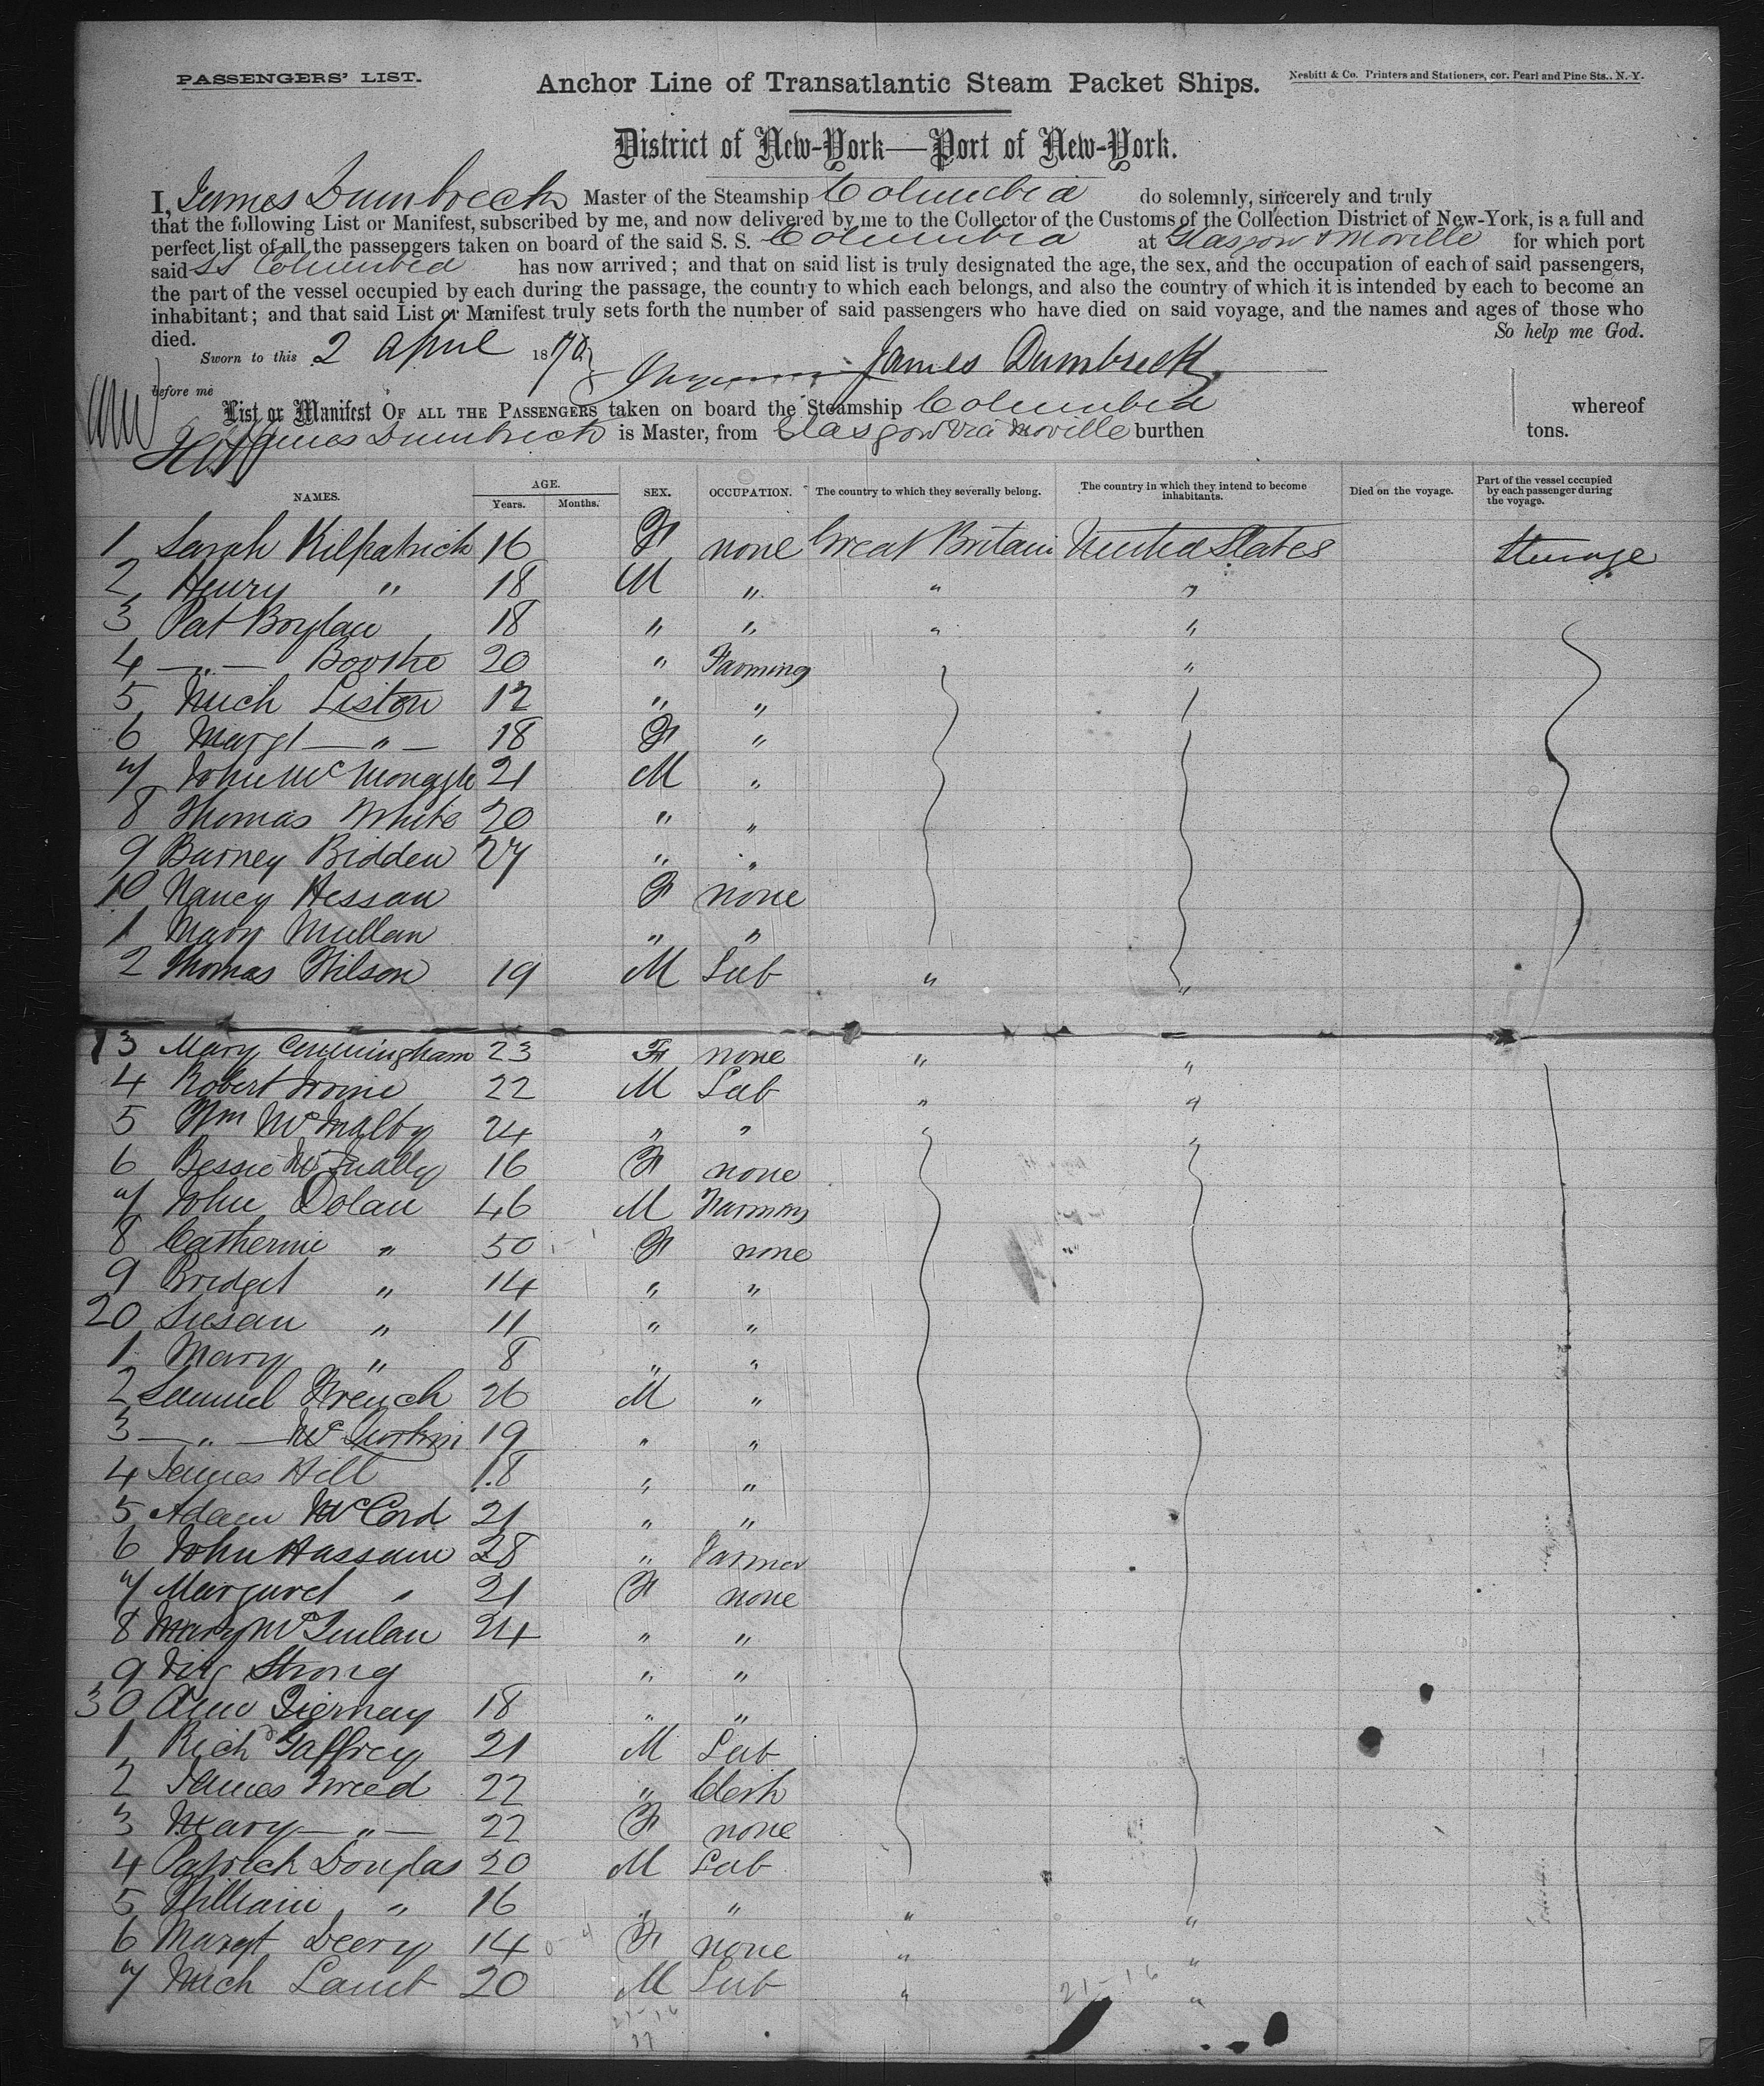 PASSENGERS' LIST.
Anchor Line of Transatlantic Steam Packet Ships.
Nesbitt & Co. Printers and Stationers, cor. Pearl and Pine Sts., N.Y.
District of New-York—Port of New-York.
I, James Dumbreck Master of the Steamship Columbia do solemnly, sincerely and truly
that the following List or Manifest, subscribed by me, and now delivered by me to the Collector of the Customs of the Collection District of New-York, is a full and
perfect list of all the passengers taken on board of the said S. S. Columbia at Glasgow & Moville for which port
said SS Columbia has now arrived; and that on said list is truly designated the age, the sex, and the occupation of each of said passengers,
the part of the vessel occupied by each during the passage, the country to which each belongs, and also the country of which it is intended by each to become an
inhabitant; and that said List or Manifest truly sets forth the number of said passengers who have died on said voyage, and the names and ages of those who
died. So help me God.
Sworn to this 2 April 1870 James Dumbreck
before me
List or Manifest OF ALL THE PASSENGERS taken on board the Steamship Columbia whereof
James Dumbreck is Master, from Glasgow via Moville burthen tons.
NAMES. AGE. Years. Months. SEX. OCCUPATION. The country to which they severally belong. The country in which they intend to become inhabitants. Died on the voyage. Part of the vessel occupied by each passenger during the voyage.
1 Sarah Kilpatrick 16 F none Great Britain United States Steerage
2 Henry " 18 M " " "
3 Pat Boylan 18 " " " "
4 —"— 20 " Farming "
5 Mich Liston 12 " "
6 Margt —"— 18 F "
7 John McMonagle 21 M "
8 Thomas White 20 " "
9 Barney Bidden 27 " "
10 Nancy Hessan F none
1 Mary Mullan " "
2 Thomas Wilson 19 M Lab " "
13 Mary Cunningham 23 F none " "
4 Robert Irvine 22 M Lab " "
5 Wm 24 " " " "
6 Bessie 16 F none
7 John Dolan 46 M Farming
8 Catherine " 50 F none
9 Bridget " 14 " "
20 Susan " 11 " "
1 Mary " 8 " "
2 Samuel French 26 M "
3 —"— 19 " "
4 James Hill 18 " "
5 Adam McCord 21 " "
6 John Hassan 28 " Farmer
7 Margaret " 21 F none
8 Mary 24 " "
9 Strong " "
30 Ann Tiernay 18 " "
1 Richd Gaffrey 21 M Lab
2 James 22 " Clerk
3 Mary —"— 22 F none
4 Patrick Douglas 20 M Lab
5 William " 16 " " " "
6 Margt Deery 14 F none " "
7 Mich Lamb 20 M Lab " "
21-16
21-16
37